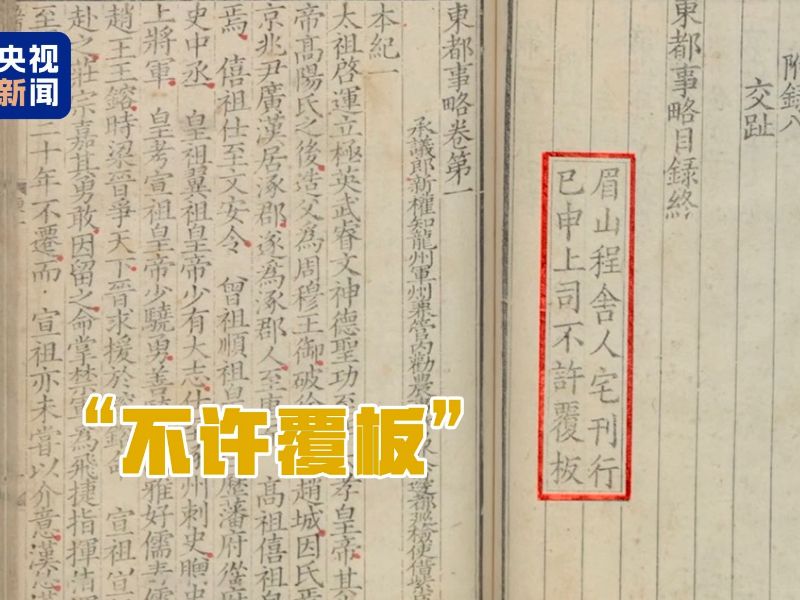 央视
新闻
附錄八
交趾
東都事略目錄終
眉山程舍人宅刊行
已申上司不許覆板
東都事略卷第一
承議郎新權知龍州軍州兼管內勸農 邊都巡檢使借紫
本紀一
太祖啓運立極英武睿文神德聖功至 孝皇帝其
帝高陽氏之後造父為周穆王御破徐 趙城因氏焉
京兆尹廣漢居涿郡遂為涿郡人至唐 高祖僖祖
焉 僖祖仕至文安令 曾祖順祖皇 歷藩府從
史中丞 皇祖翼祖皇帝少有大志仕 州刺史贈
上將軍 皇考宣祖皇帝少驍勇善 雅好儒
趙王王鎔時梁晉爭天下晉求援於鎔 宣祖
赴之莊宗嘉其勇敢因留之命掌禁 為飛捷指揮
至 二十年不遷而 宣祖亦未嘗以介意漢
“不许覆板”